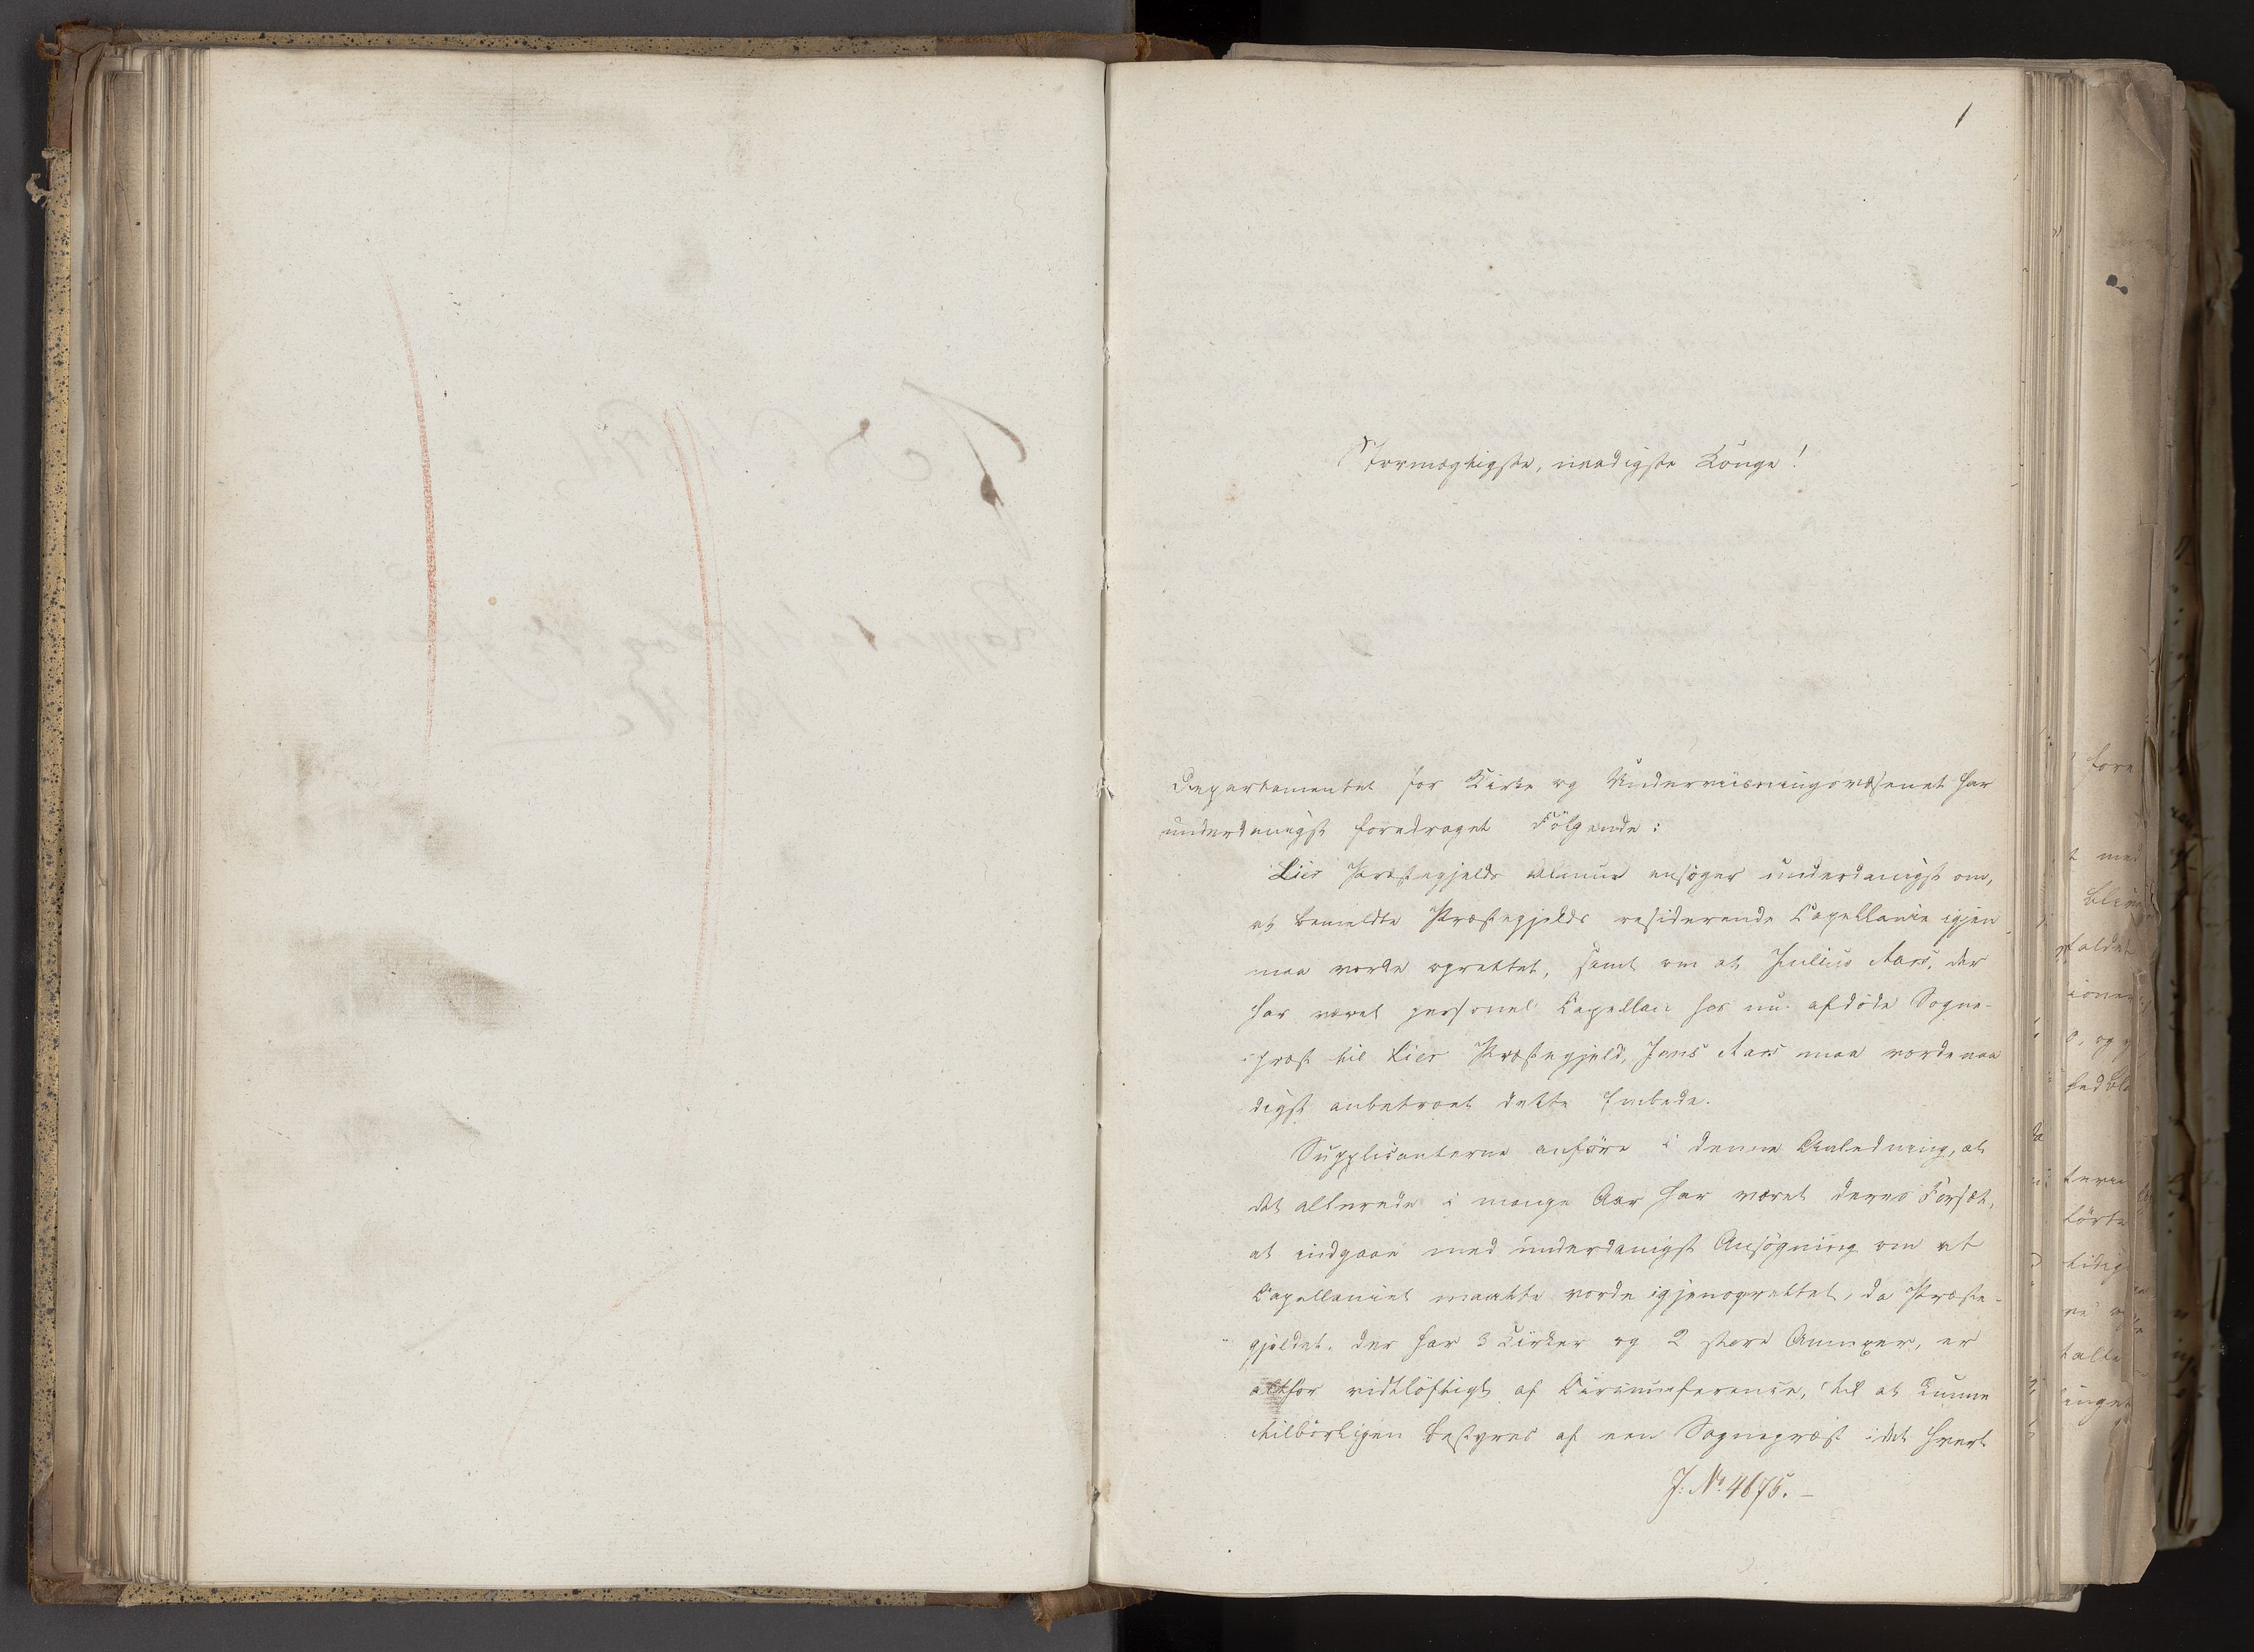 1
Stormægtigste, naadigste Konge!
Departementet for Kirke og Underviisningsvæsenet har
underdanigst foredraget Følgende:
Lier Præstegjelds Almue ansøger underdanigst om,
at bemeldte Præstegjelds residerende Capellanie igjen
maa vorde oprettet, samt om at Julius Aars, der
har været personel Capellan hos nu afdøde Sogne-
præst til Lier Præstegjeld, Jens Aars maa vorde naa
digst anbetroet dette Embede.
Supplicanterne anføre i denne Anledning, at
det allerede i mange Aar har været deres Forsæt,
at indgaae med underdanigst Ansøgning om at
Capellaniet maatte vorde igjenoprettet, da Præste-
gjeldet, der har 3 Kirker og 2 store Annexer, er
altfor vidtløftigt af Circumference, til at kunne
tilbørligen bestyres af een Sognepræst i det hvert
J: No. 4675. –